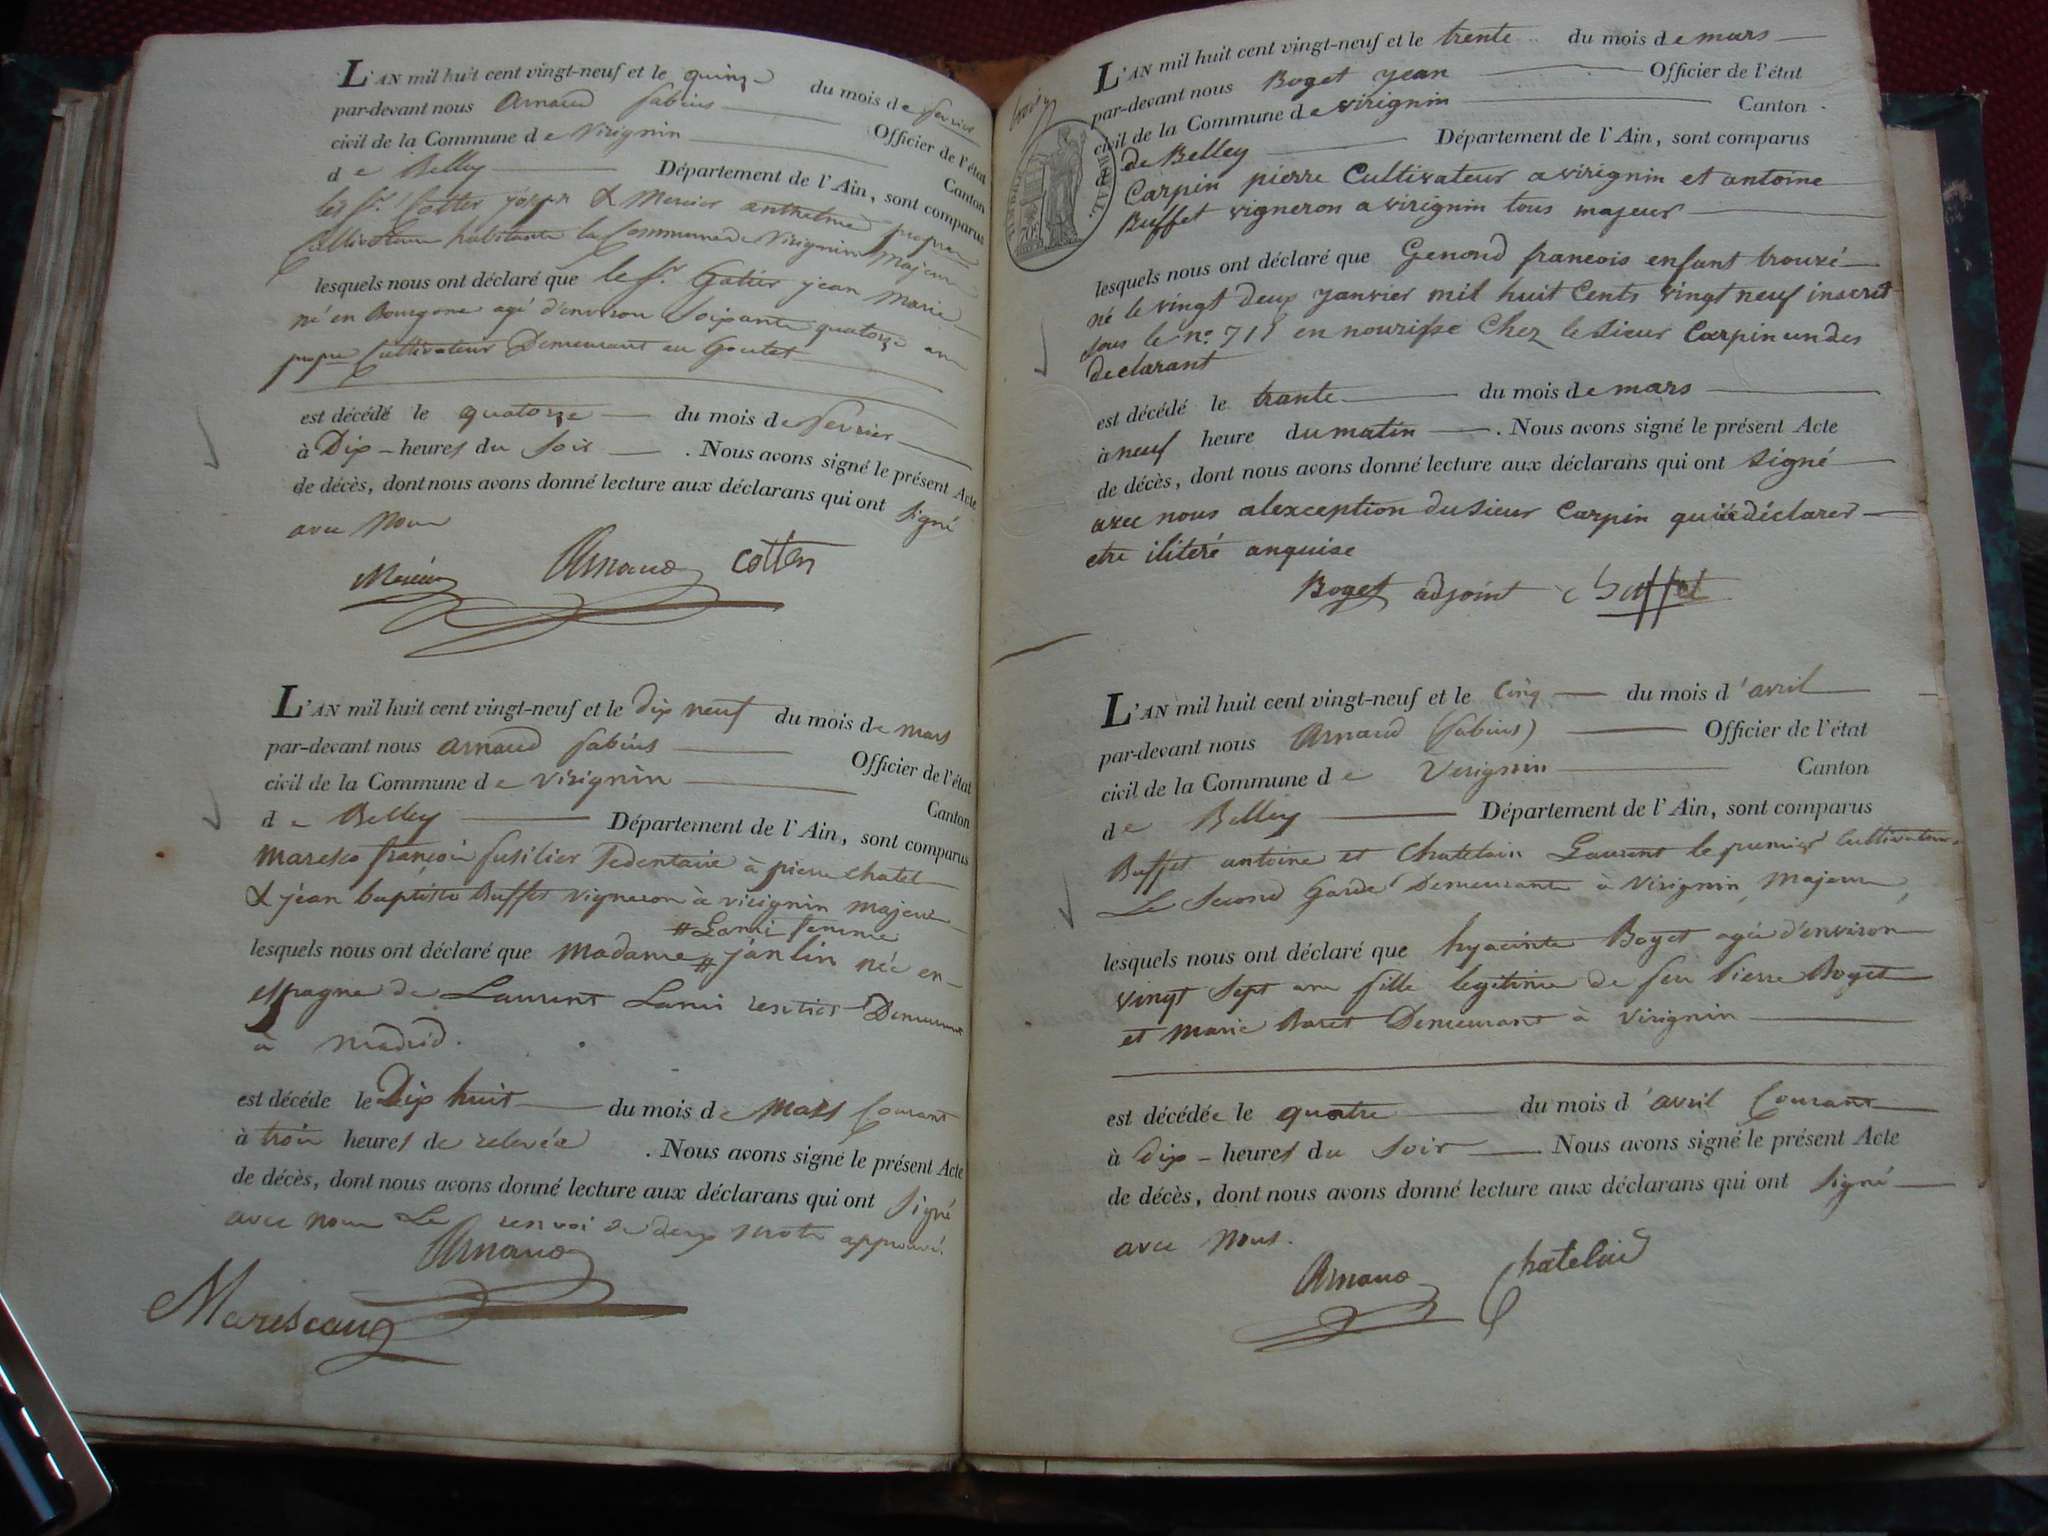 L'AN mil huit cent vingt-neuf et le quinze du mois de fevrier
par-devant nous Arnaud fabius Officier de l'état
civil de la Commune de Virignin Canton
de Belley Département de l'Ain, sont comparus
les Sr. Cotter joseph & Mercier anthelme propres
Cultivateurs habitants la Commune de Virignin Majeurs
lesquels nous ont déclaré que le Sr. Gatier jean Marie
né en Bourgone agé d'environ Soixante quatorze ans
propre Cultivateur Demeurant au Goutet
est décédé le quatorze du mois de fevrier
à Dix heures du Soir . Nous avons signé le présent Acte
de décès, dont nous avons donné lecture aux déclarans qui ont Signé
avec Nous
Mercier Arnaud cotter
L'AN mil huit cent vingt-neuf et le dix neuf du mois de mars
par-devant nous Arnaud fabius Officier de l'état
civil de la Commune de virignin Canton
de Belley Département de l'Ain, sont comparus
Maresco françois fusilier Sedentaire à pierre chatel
& jean baptiste Buffet vigneron à virignin majeurs
# Lami femme
lesquels nous ont déclaré que Madame # janlin née en
espagne de Laurent Lami rentier Demeurant
à Madrid.
est décéde le Dix huit du mois de Mars Courant
à trois heures de relevée . Nous avons signé le présent Acte
de décès, dont nous avons donné lecture aux déclarans qui ont Signé
avec nous Le renvoi de deux mots approuvé.
Arnaud
Marescaux
L'AN mil huit cent vingt-neuf et le trente du mois de mars
par-devant nous Boget jean Officier de l'état
civil de la Commune de virignin Canton
de Belley Département de l'Ain, sont comparus
Carpin pierre Cultivateur a virignin et antoine
Buffet vigneron a virignin tous majeur
lesquels nous ont déclaré que Genond francois enfant trouvé
né le vingt deux janvier mil huit Cents vingt neuf inscrit
sous le no. 711 en nourisse Chez le sieur Carpin un des
declarant
est décédé le trante du mois de mars
à neuf heure du matin . Nous avons signé le présent Acte
de décès, dont nous avons donné lecture aux déclarans qui ont signé
avec nous alexception du sieur Carpin qui déclarer
etre ilitéré anquise
Boget adjoint buffet
L'AN mil huit cent vingt-neuf et le Cinq du mois d'avril
par-devant nous Arnaud (fabius) Officier de l'état
civil de la Commune de Virignin Canton
de Belley Département de l'Ain, sont comparus
Buffet antoine et Chatelain Laurent le premier Cultivateur
Le Second Garde Demeurants à Virignin, Majeurs,
lesquels nous ont déclaré que hyacinte Boget agée d'environ
vingt Sept ans fille legitime de feu Pierre Boget
et Marie Baret Demeurant à Virignin
est décédée le quatre du mois d'avril Courant
à dix heures du Soir Nous avons signé le présent Acte
de décès, dont nous avons donné lecture aux déclarans qui ont Signé
avec Nous.
Arnaud Chatelain